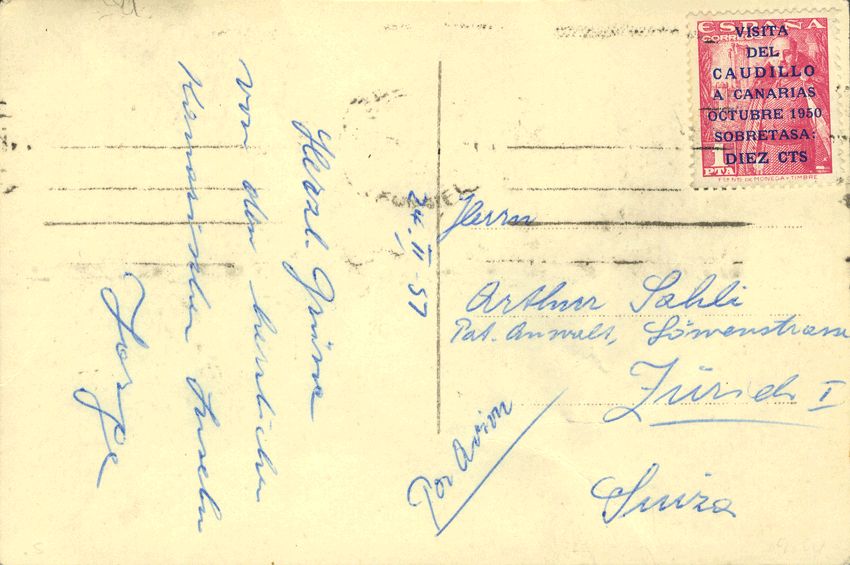 24. II. 57
Herzl. Grüsse
von den herrlichen
Kanarischen Inseln
Jorge
ESPAÑA
CORREOS
VISITA
DEL
CAUDILLO
A CANARIAS
OCTUBRE 1950
SOBRETASA:
DIEZ CTS
1
PTA
Herrn
Arthur Sahli
Pat. Anwalt, Löwenstrasse
Zürich I
Suiza
Por Avion